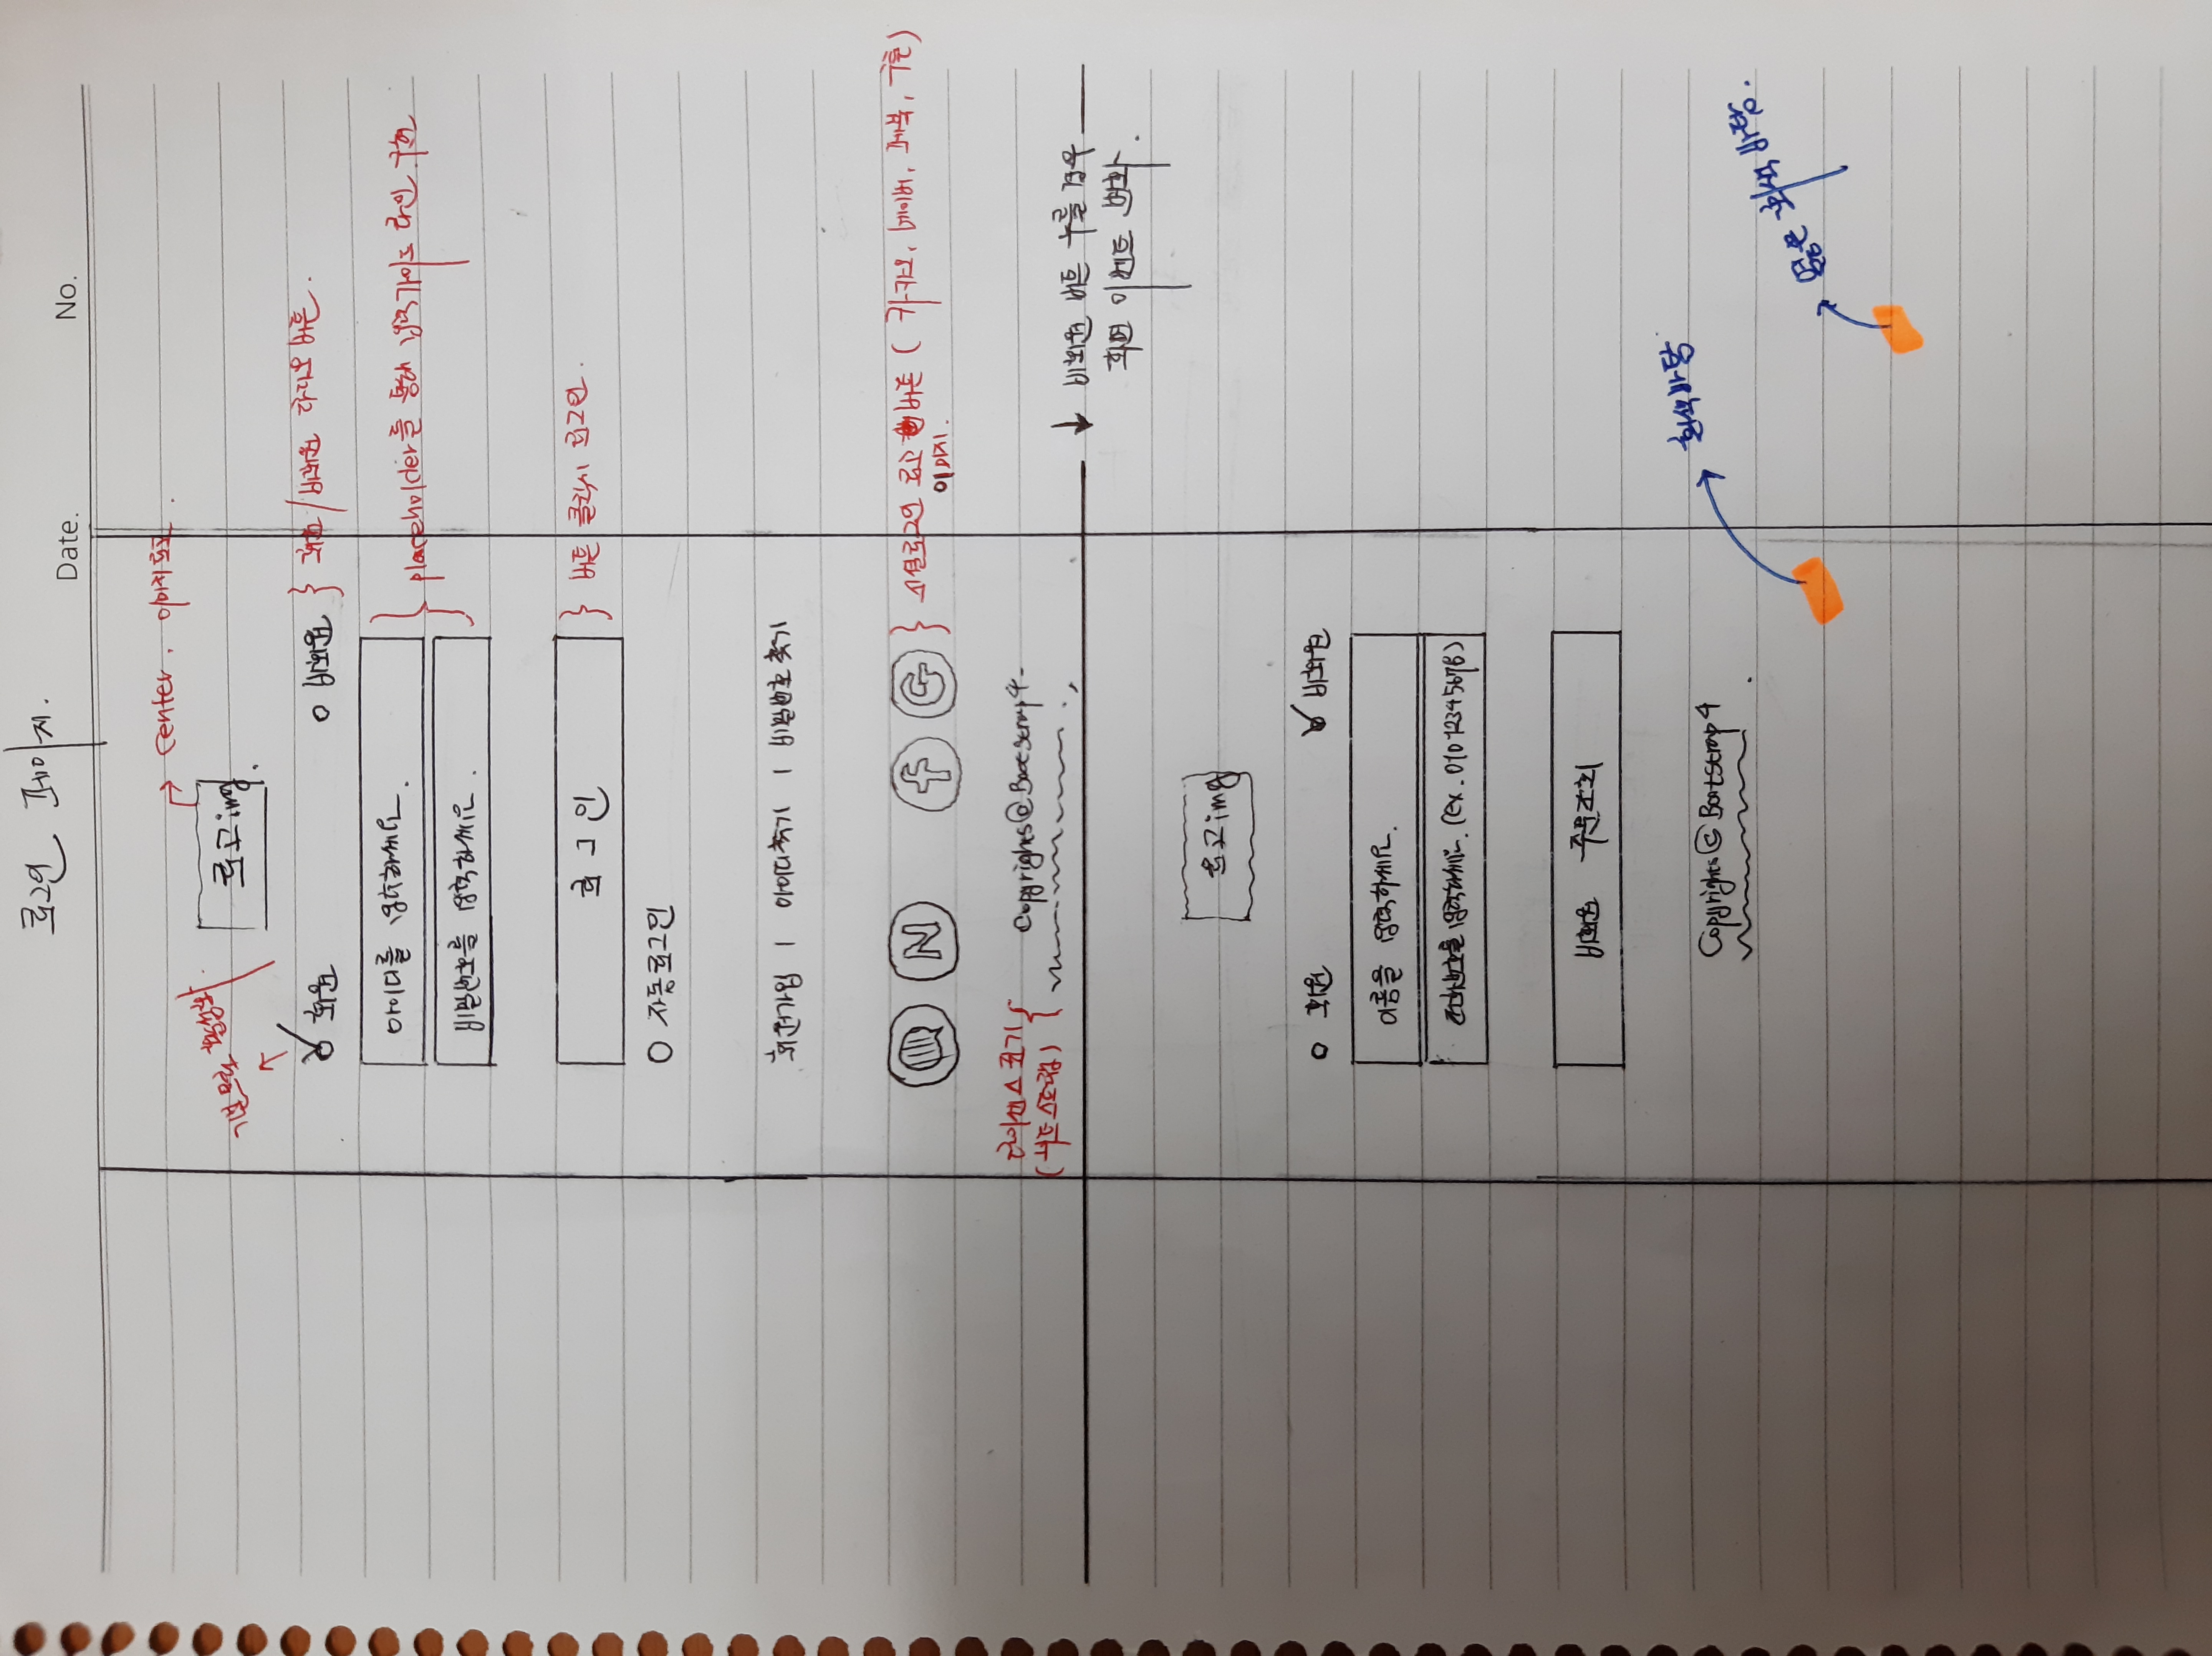 로그인 페이지.
Date. No.
center. 이미지로고.
기본으로 활성화
로고img.
회원 비회원 } 회원/비회원 라디오 버튼.
아이디를 입력하세요.
placeholder를 통해 입력가이드 라인 구현
비밀번호를 입력하세요.
로그인 } 버튼 클릭시 로그인.
자동로그인
회원가입 | 아이디찾기 | 비밀번호 찾기
N f G } 소셜로그인 로고 버튼 ( 카카오, 네이버, 페북, 구글 )
이미지.
라이센스 표기
(부트스트랩)
Copyrights@Bootstrap4-
↓ 비회원 버튼 누를 경우
화면 이벤트 변화.
로고img
회원 비회원
이름을 입력하세요.
전화번호를 입력하세요. (ex. 01012345678)
비회원 주문조회
Copyrights©Bootstrap4
흰색바탕
옅은 회색 바탕.